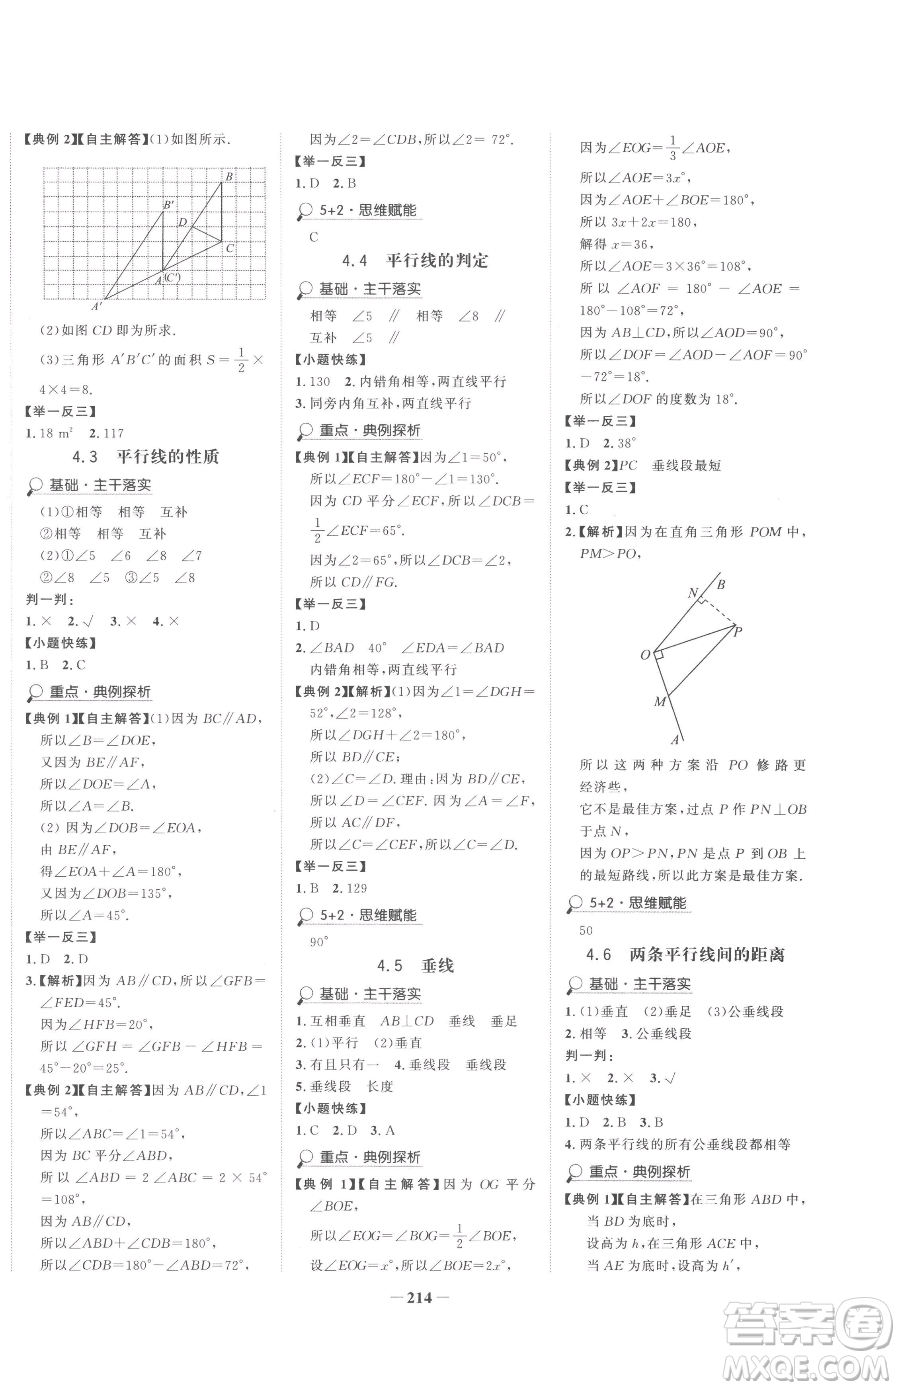 【典例 2】【自主解答】(1)如图所示.
B
B′
D
C
A (C′)
A′
(2)如图 CD 即为所求.
(3)三角形 A′B′C′的面积 S=1/2×
4×4=8.
【举一反三】
1.18 m²  2.117
4.3 平行线的性质
基础·主干落实
(1)①相等 相等 互补
②相等 相等 互补
(2)①∠5 ∠6 ∠8 ∠7
②∠8 ∠5 ∠5 ∠8
判一判:
1.× 2.√ 3.× 4.×
【小题快练】
1.B 2.C
重点·典例探析
【典例 1】【自主解答】(1)因为 BC∥AD,
所以∠B=∠DOE,
又因为 BE∥AF,
所以∠DOE=∠A,
所以∠A=∠B.
(2) 因为∠DOB=∠EOA,
由 BE∥AF,
得∠EOA+∠A=180°,
又因为∠DOB=135°,
所以∠A=45°.
【举一反三】
1.D 2.D
3.【解析】因为 AB∥CD,所以∠GFB=
∠FED=45°.
因为∠HFB=20°,
所以∠GFH=∠GFB-∠HFB=
45°-20°=25°.
【典例 2】【自主解答】因为 AB∥CD,∠1
=54°,
所以∠ABC=∠1=54°,
因为 BC 平分∠ABD,
所以∠ABD=2∠ABC=2×54°
=108°,
因为 AB∥CD,
所以∠ABD+∠CDB=180°,
所以∠CDB=180°-∠ABD=72°,
因为∠2=∠CDB,所以∠2=72°.
【举一反三】
1.D 2.B
5+2·思维赋能
C
4.4 平行线的判定
基础·主干落实
相等 ∠5 ∥ 相等 ∠8 ∥
互补 ∠5 ∥
【小题快练】
1.130 2.内错角相等,两直线平行
3.同旁内角互补,两直线平行
重点·典例探析
【典例 1】【自主解答】因为∠1=50°,
所以∠ECF=180°-∠1=130°.
因为 CD 平分∠ECF,所以∠DCB=
1/2∠ECF=65°.
因为∠2=65°,所以∠DCB=∠2,
所以 CD∥FG.
【举一反三】
1.D
2.∠BAD 40° ∠EDA=∠BAD
内错角相等,两直线平行
【典例 2】【解析】(1)因为∠1=∠DGH=
52°,∠2=128°,
所以∠DGH+∠2=180°,
所以 BD∥CE;
(2)∠C=∠D.理由:因为 BD∥CE,
所以∠D=∠CEF.因为∠A=∠F,
所以 AC∥DF,
所以∠C=∠CEF,所以∠C=∠D.
【举一反三】
1.B 2.129
5+2·思维赋能
90°
4.5 垂线
基础·主干落实
1.互相垂直 AB⊥CD 垂线 垂足
2.(1)平行 (2)垂直
3.有且只有一 4.垂线段
5.垂线段 长度
【小题快练】
1.C 2.D 3.A
重点·典例探析
【典例 1】【自主解答】因为 OG 平分
∠BOE,
所以∠EOG=∠BOG=1/2∠BOE,
设∠EOG=x°,所以∠BOE=2x°,
因为∠EOG=1/3∠AOE,
所以∠AOE=3x°,
因为∠AOE+∠BOE=180°,
所以 3x+2x=180,
解得 x=36,
所以∠AOE=3×36°=108°,
所以∠AOF=180°-∠AOE=
180°-108°=72°,
因为 AB⊥CD,所以∠AOD=90°,
所以∠DOF=∠AOD-∠AOF=90°
-72°=18°.
所以∠DOF 的度数为 18°.
【举一反三】
1.D 2.38°
【典例 2】PC 垂线段最短
【举一反三】
1.C
2.【解析】因为在直角三角形 POM 中,
PM>PO,
N
B
P
O
M
A
所以这两种方案沿 PO 修路更
经济些,
它不是最佳方案,过点 P 作 PN⊥OB
于点 N,
因为 OP>PN,PN 是点 P 到 OB 上
的最短路线,所以此方案是最佳方案.
5+2·思维赋能
50
4.6 两条平行线间的距离
基础·主干落实
1.(1)垂直 (2)垂足 (3)公垂线段
2.相等 3.公垂线段
判一判:
1.× 2.× 3.√
【小题快练】
1.D 2.B 3.B
4.两条平行线的所有公垂线段都相等
重点·典例探析
【典例 1】【自主解答】在三角形 ABD 中,
当 BD 为底时,
设高为 h,在三角形 ACE 中,
当 AE 为底时,设高为 h′,
— 214 —
答案圈
MXQE.COM